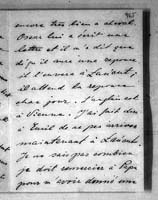 965
encore très bien à cheval.
Oscar lui a écrit une
lettre et il m'a dit que
dès qu'il aura une reponse
il l'envoie à Laurent;
il attend la reponse
chaque jour. J'
est
à Vienne. J'ai fait dire
à de ne pas arriver
maintenant à
Je ne sais pas combien
je doit remercier à Papa
pour m'avoir donné une